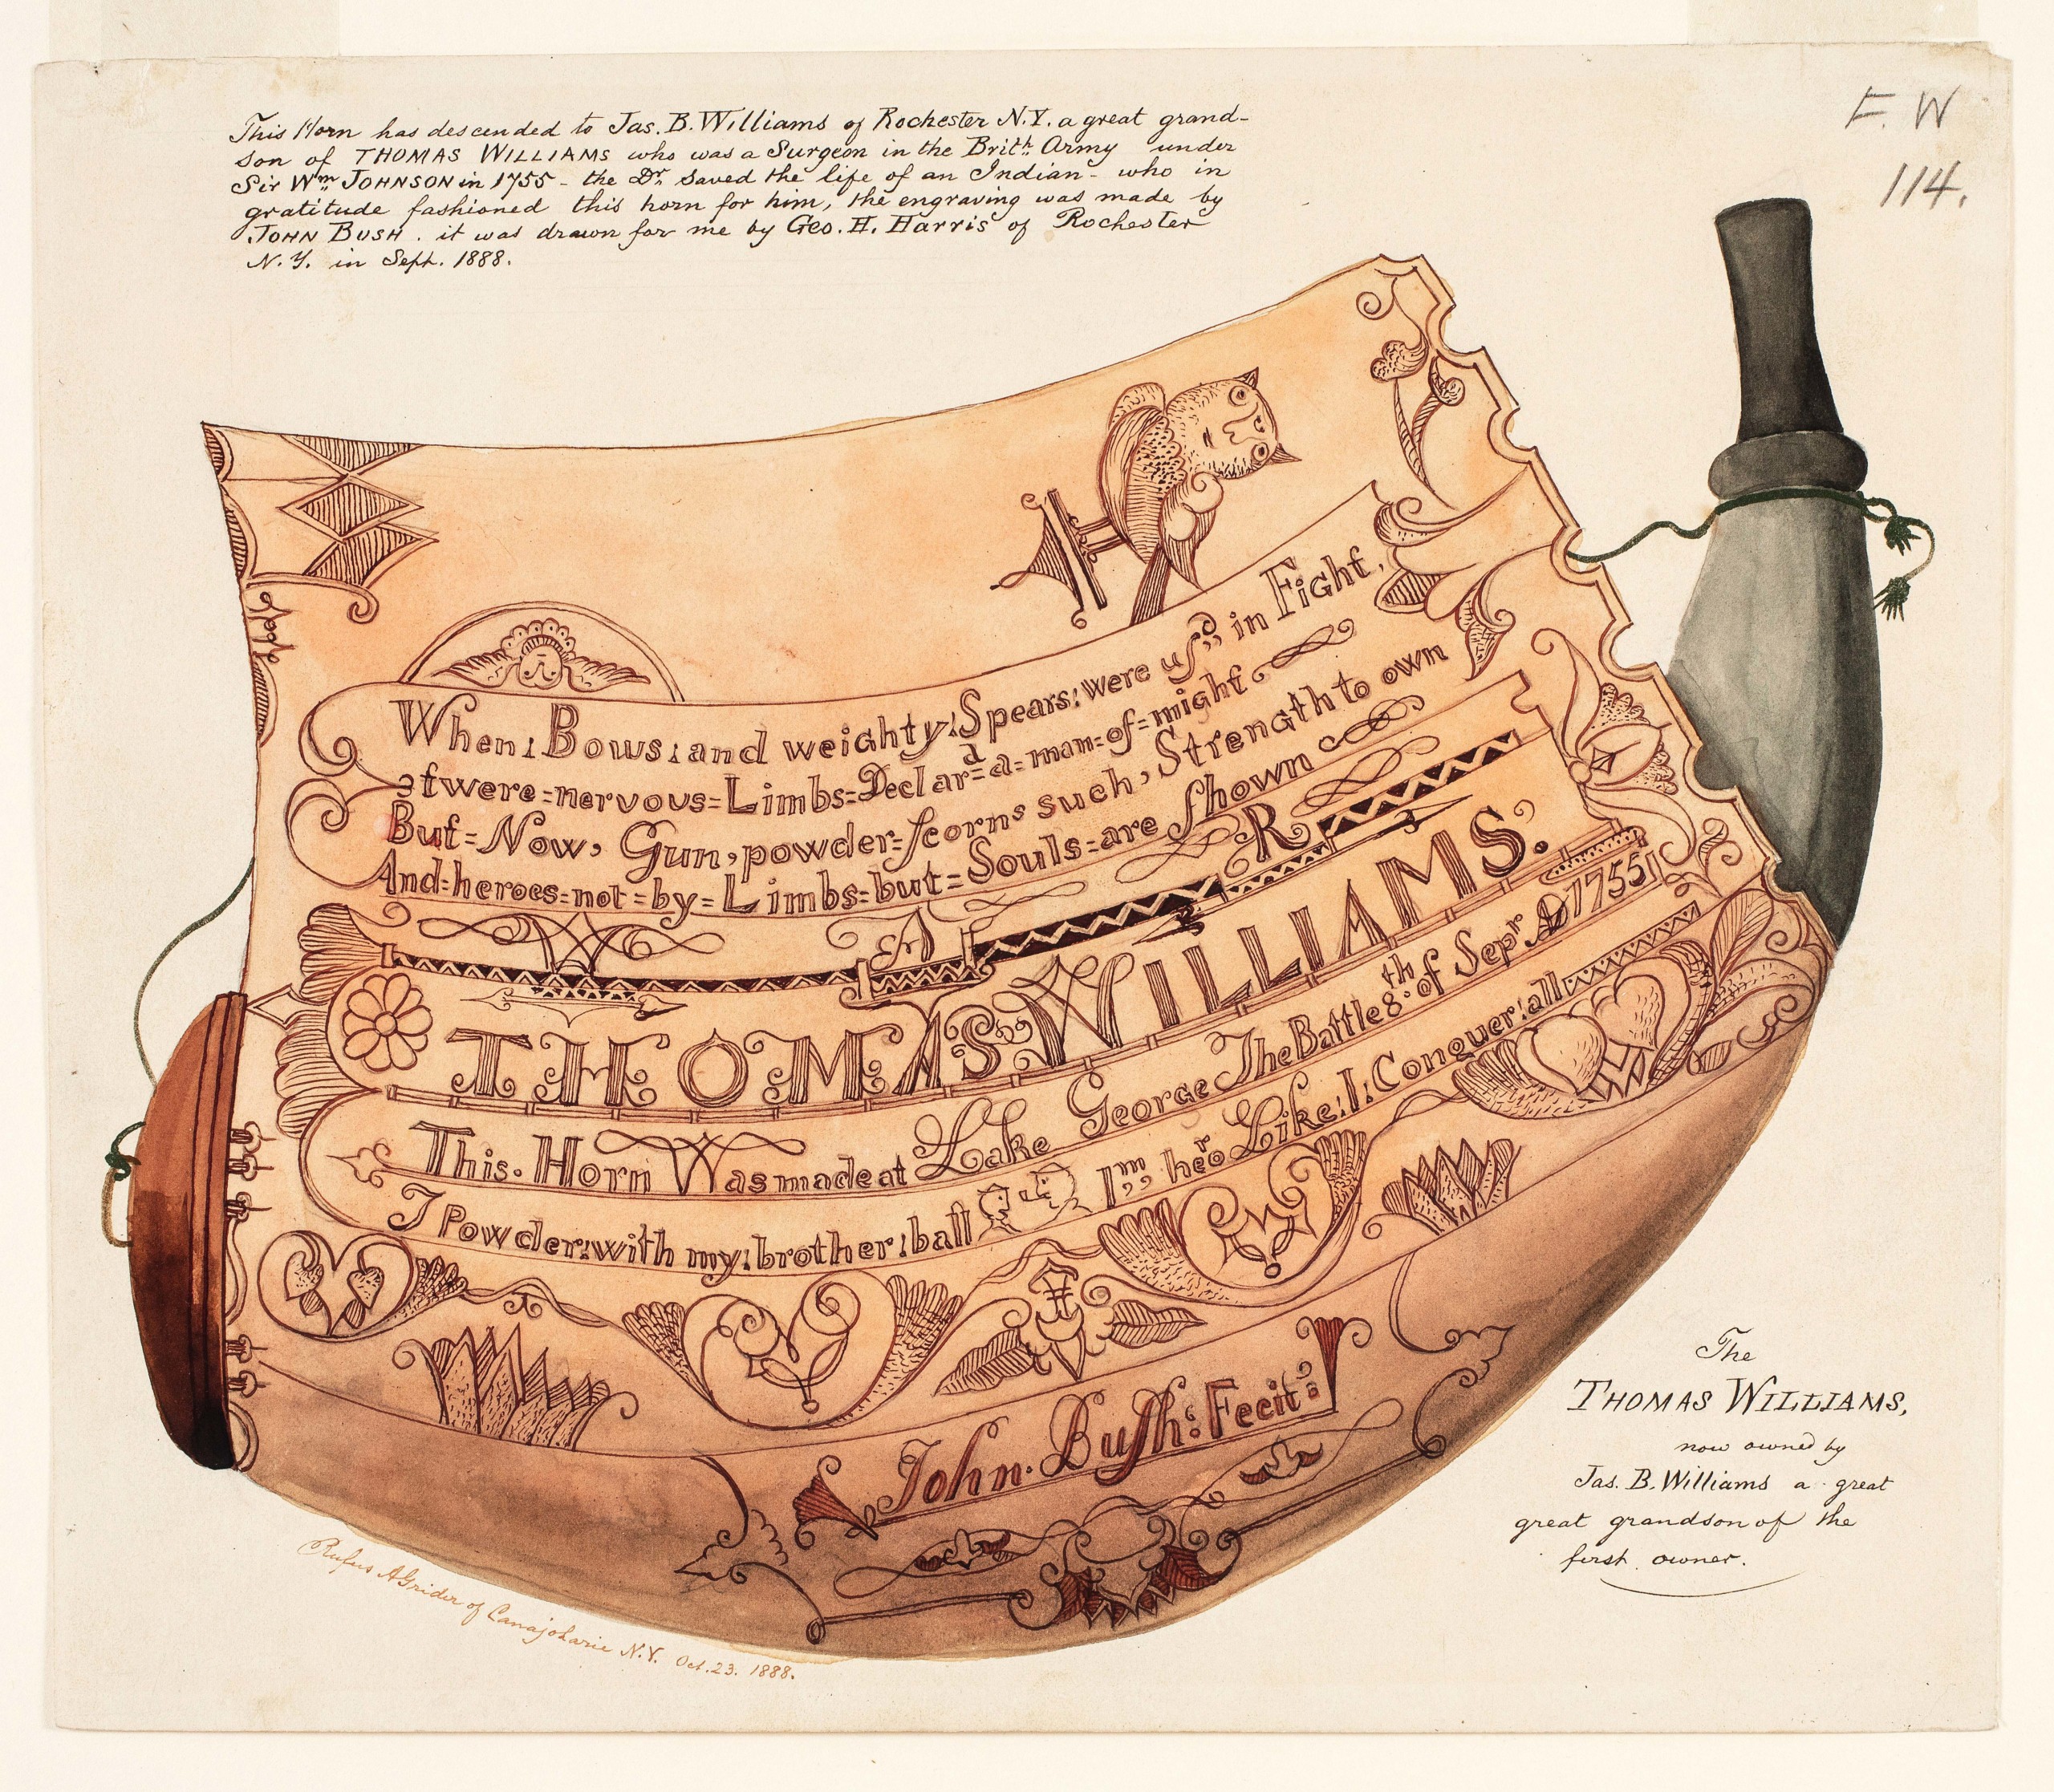 This Horn has descended to Jas. B. Williams of Rochester N.Y. a great grand-
son of THOMAS WILLIAMS who was a Surgeon in the Brith. Army under
Sir Wm JOHNSON in 1755 - the Dr. saved the life of an Indian - who in
gratitude fashioned this horn for him, the engraving was made by
JOHN BUSH. it was drawn for me by Geo. H. Harris of Rochester
N.Y. in Sept. 1888.
F. W
114.
When: Bows: and weighty: Spears: were uſ'd,, in Fight,
twere=nervous=Limbs=Declard=a=man=of=might
But=Now, Gun,powder=ſcorns such, Strength to own
And=heroes=not=by=Limbs=but=Souls=are ſhown
W A R
THOMAS WILLIAMS.
This. Horn Was made at Lake George The Battle 8th. of Sepr AD 1755
I Powder: with my: brother: ball I'm,, hero Like: I: Conquer: all
John. Buſh: Fecit
The
THOMAS WILLIAMS,
now owned by
Jas. B. Williams a great
great grandson of the
first owner.
Rufus A Grider of Canajoharie N.Y. Oct. 23. 1888.